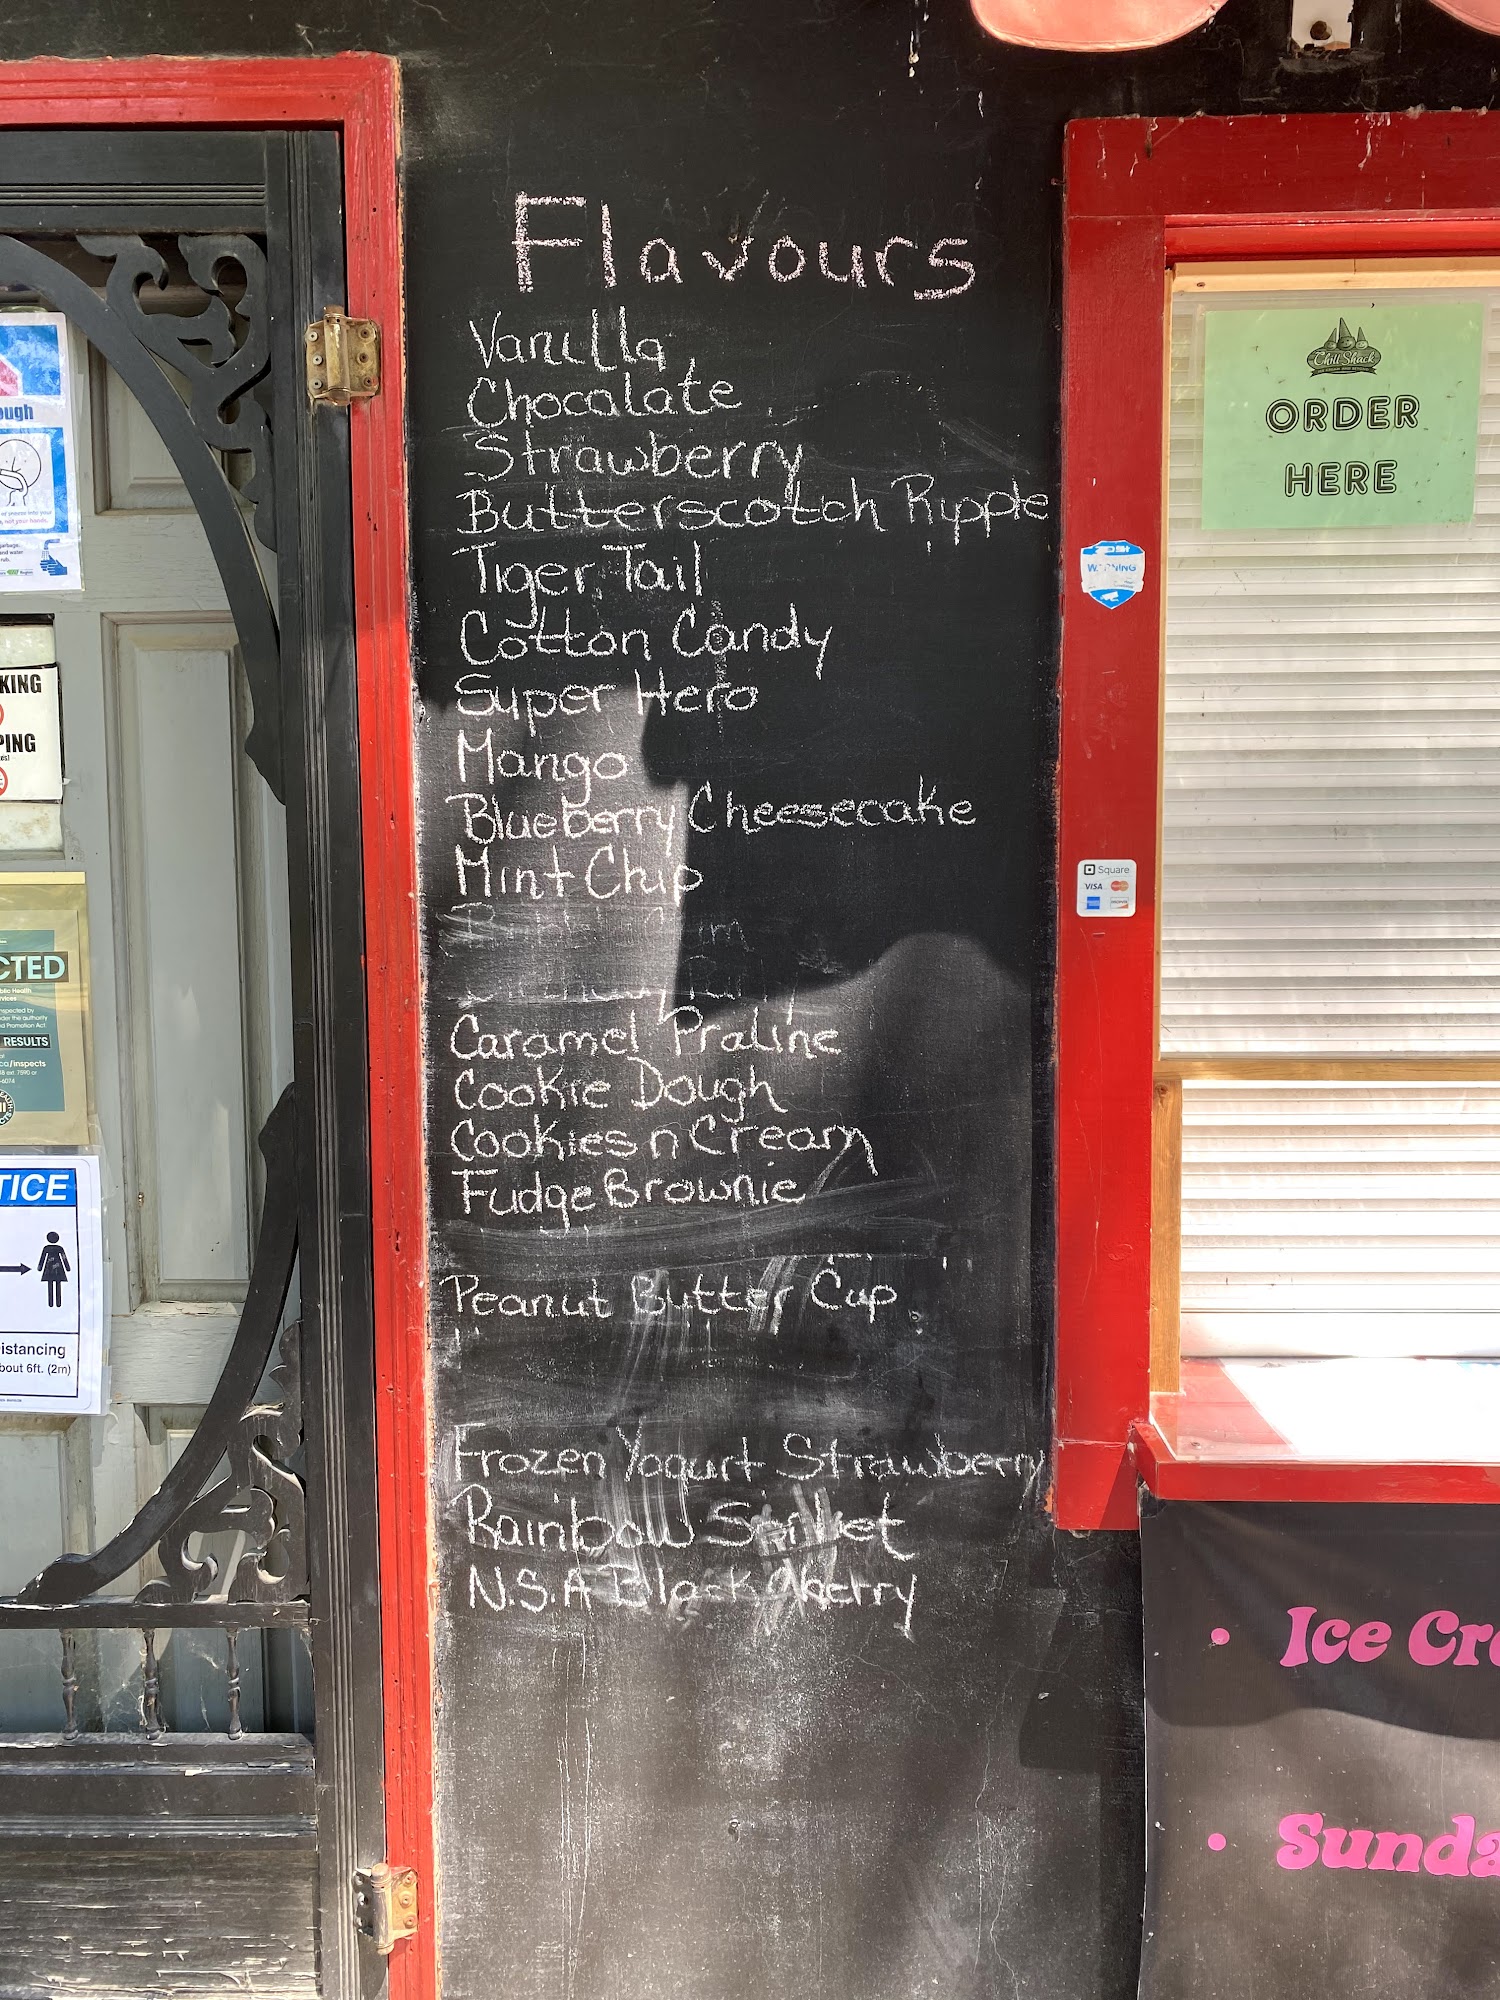 Flavours
Vanilla
Chocolate
Strawberry
Butterscotch Ripple
Tiger Tail
Cotton Candy
Super Hero
Mango
Blueberry Cheesecake
Mint Chip
Caramel Praline
Cookie Dough
Cookies n Cream
Fudge Brownie
Peanut Butter Cup
Frozen Yogurt Strawberry
Rainbow
N.S.A Black
Chill Shack
ORDER
HERE
WARNING
Square
VISA
Ice Cre
Sunda
ough
KING
PING
CTED
RESULTS
ca/inspects
TICE
istancing
bout 6ft. (2m)